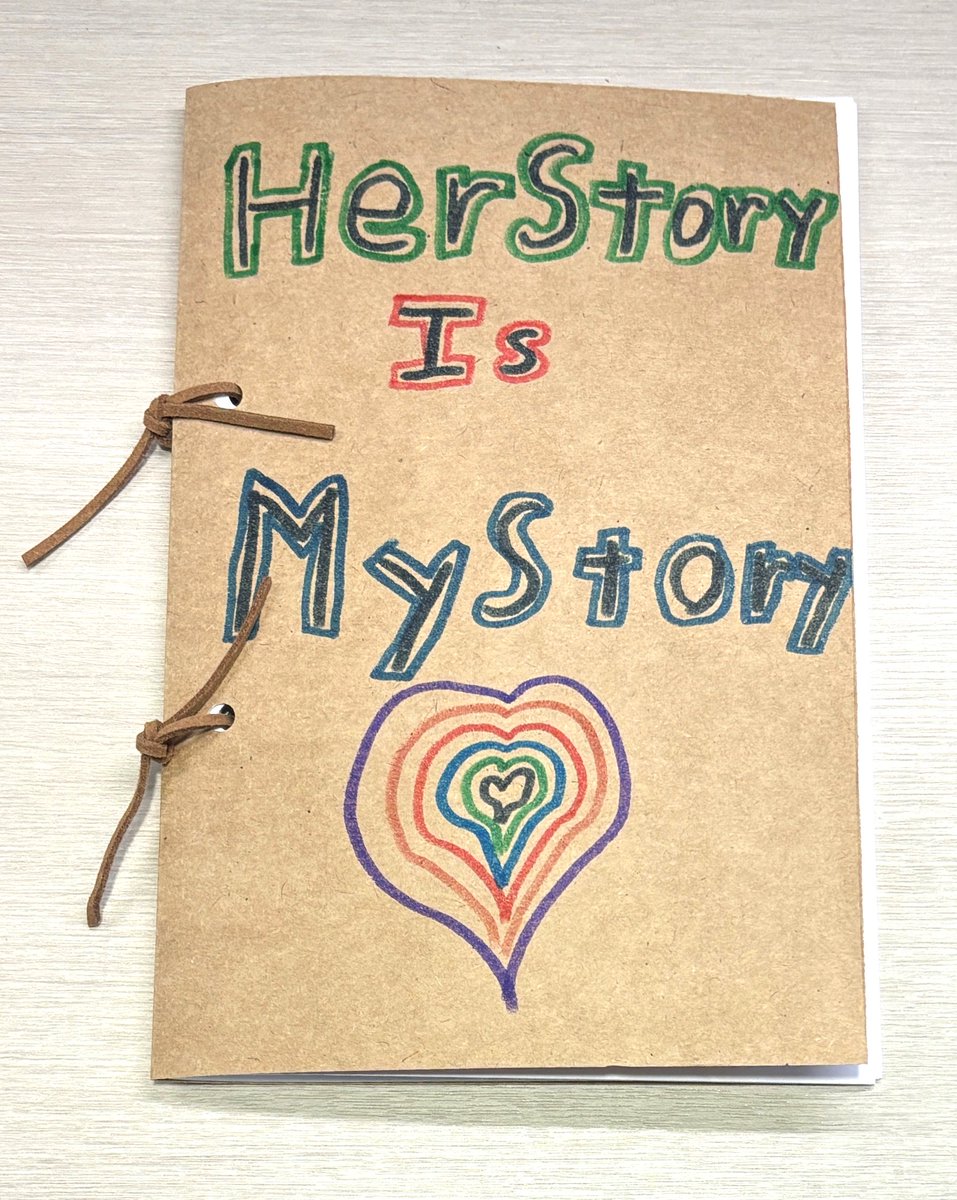 HerStory
Is
MyStory